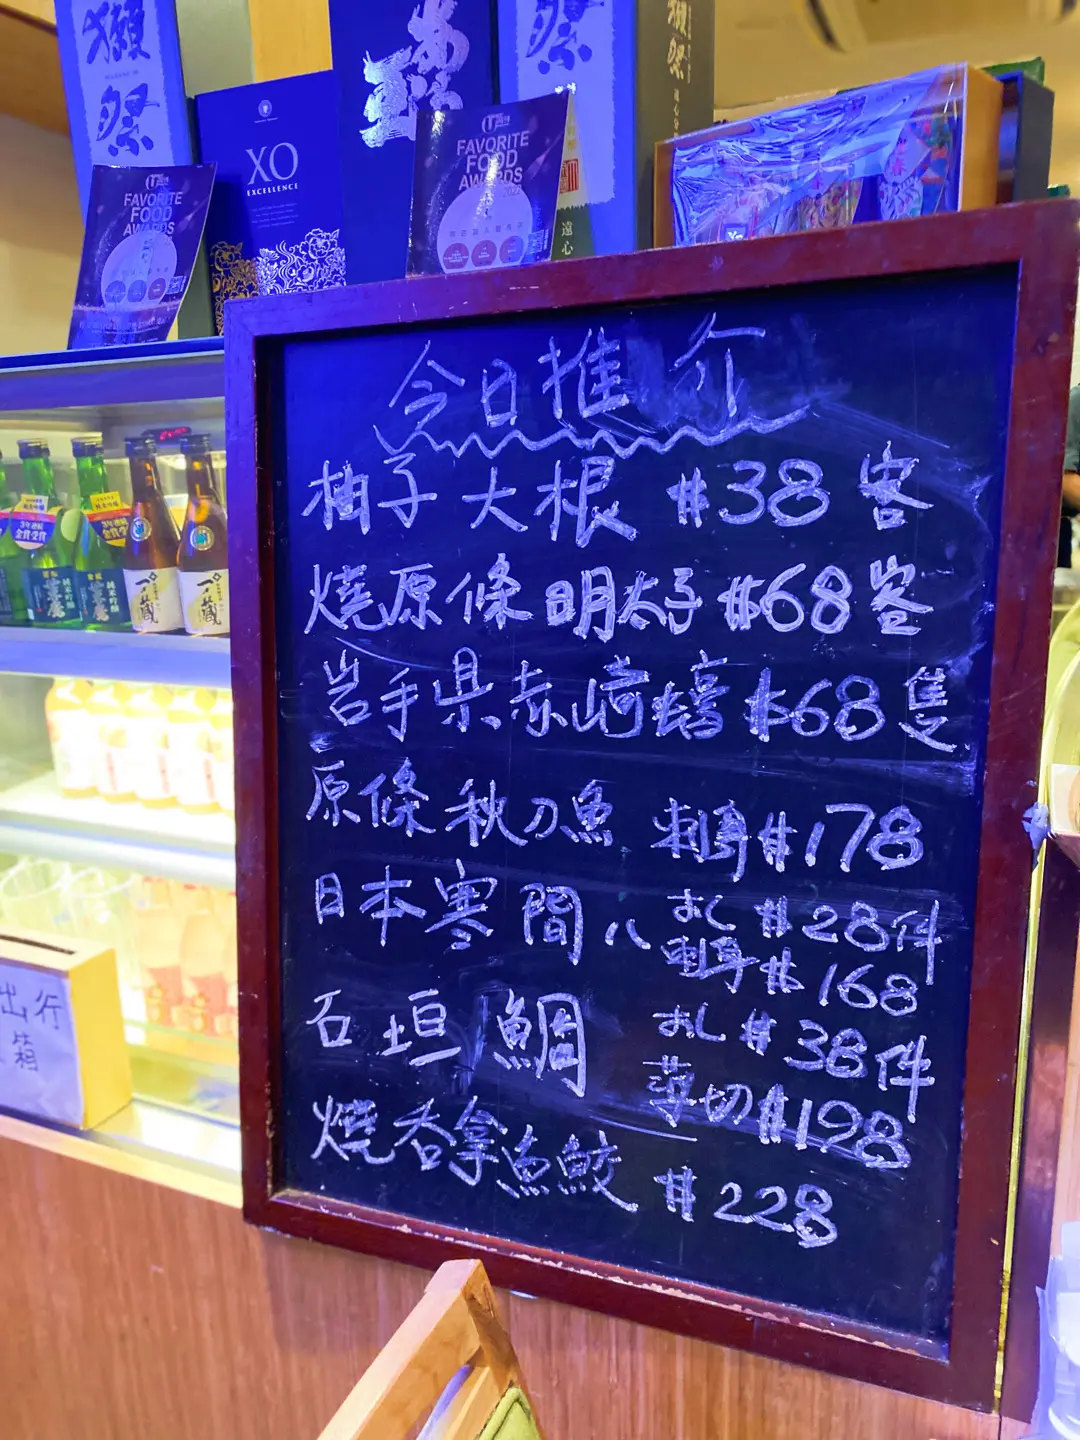 獺祭
XO
EXCELLENCE
FAVORITE
FOOD
AWARDS
FAVORITE
FOOD
AWARDS
獺祭
遠心
今日推介
柚子大根 $38 客
燒原條明太子 $68 客
岩手県赤崎蠔 $68 隻
原條秋刀魚 刺身 $178
すし $28件
日本寒間八 刺身 $168
すし $38件
石垣鯛 薄切 $198
燒吞拿魚鮫 $228
一ノ蔵
一ノ蔵
出行
箱